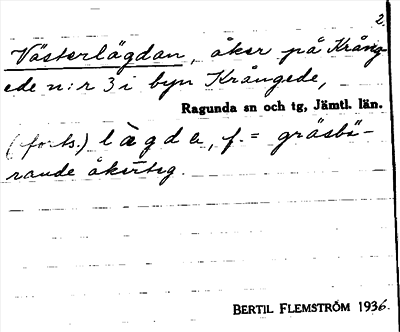 2.
Västerlägdan, åker på Krång-
ede n:r 3 i byn Krångede,
Ragunda sn och tg, Jämtl. län.
(forts.) lägda, f. = gräsbä-
rande åkerteg.
BERTIL FLEMSTRÖM 1936.